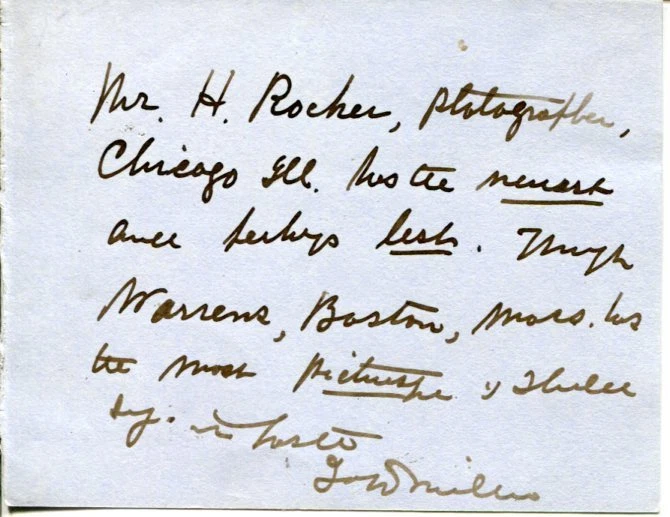 Mr. H. Rocher, photographer,
Chicago Ill. has the newest
and perhaps best. Though
Warrens, Boston, Mass. has
the most picturesque, I should
say. in haste